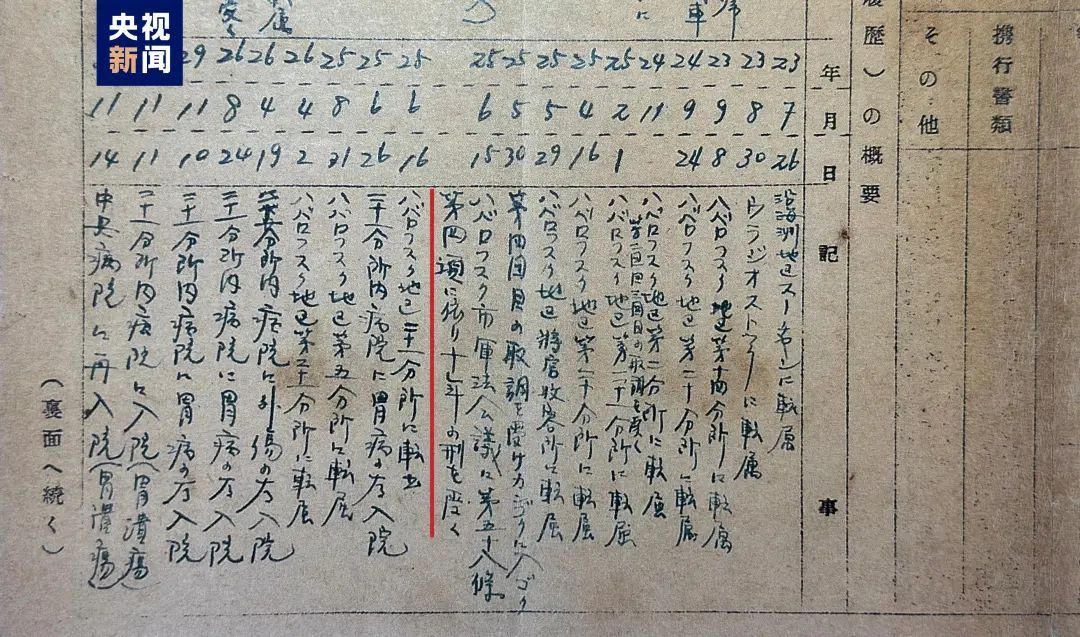 央视
新闻
携行書類
その他
履歴)の概要
年
月
日
記
事
23 7 26 沿海洲地区スーチャンに転属
23 8 30 ウラジオストックに転属
23 9 8 ハバロフスク地区第十四分所に転属
24 9 24 ハバロフスク地区第二十分所に転属
24 11 ハバロフスク地区第二分所に転属
の取調を受く
25 2 1 ハバロフスク地区第二十分所に転属
25 4 16 ハバロフスク地区第二十分所に転属
25 5 29 ハバロフスク地区将官收容所に転属
25 5 30 第四回目の取調を受け
25 6 15 ハバロフスク市軍法会議に第五十八條
第四項に依り 年の刑を受く
25 6 16 ハバロフスク地区二十一分所に転出
25 6 26 二十一分所内病院に胃病の为入院
25 8 21 ハバロフスク地区第五分所に転属
26 4 2 ハバロフスク地区第二十一分所に転属
26 4 19 分所内病院に外傷の为入院
26 8 24 二十一分所内病院に胃病の为入院
29 11 10 二十一分所内病院に胃病の为入院
11 11 二十一分所内病院に入院(胃潰瘍)
11 14 中央病院に再入院(胃潰瘍)
(裏面へ続く)